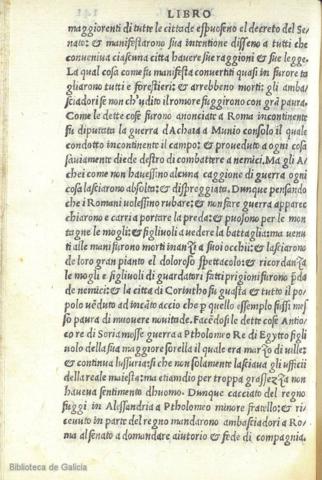 LIBRO
maggiorenti di tutte le cittade espuoseno el decreto del Se
nato: & manifestarono sua intentione disseno a tutti che
conveniva ciascuna citta havere sue raggioni & sue legge.
La qual cosa come fu manifesta convertiti quasi in furore ta
gliarono tutti e forestieri: & arrebbeno morti: gli amba
sciadori se non ch'udito il romore fuggirono con grã paura.
Come le dette cose furono anonciate a Roma incontinente
fu diputata la guerra d'Achaia a Munio consolo il quale
condotto incontinente il campo: & proveduto a ogni cosa
saviamente diede destro di combattere a nemici. Ma gli A
chei come non havessino alcuna caggione di guerra ogni
cosa lasciarono absolta: & disproggiata. Dunque pensando
che i Romani volessino rubare: & non fare guerra apparec
chiarono e carri a portare la preda: & puosono per le mon
tagne le mogli: & figliuoli a vedere la battaglia: ma venu
ti alle mani furono morti inanzi a suoi occhii: & lasciarono
de loro gran pianto el doloroso spettacolo: & ricordanza
le mogli e figliuoli di guardatori fatti prigioni furono pda
de nemici: & la citta di Corintho fu guasta & tutto il po
polo vẽduto ad incãto accio che p quello essempio fussi mes
so paura di muovere novitade. Facẽdosi le dette cose Antio
co re di Soria mosse guerra a Ptholomeo Re di Egytto figli
uolo della sua maggiore sorella il quale era marzo di villez
& continua lussuria si che non solamente lasciava gli ufficii
della reale maiesta: ma etiamdio per troppa grassezza non
haveva sentimento dhuomo. Dunque cacciato del regno
fuggi in Alessandria a Ptholomeo minore fratello: & ri
cevuto in parte del regno mandarono ambasciadori a Ro
ma al senato a domandare aiutorio & fede di compagnia.
Biblioteca de Galicia